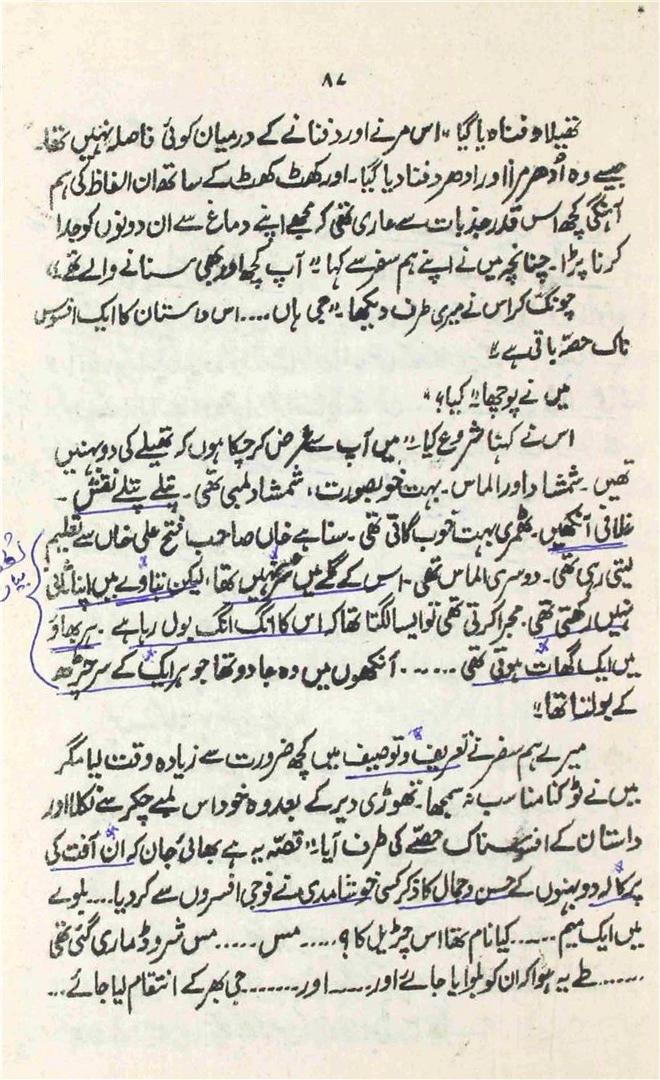 ۸۷
تھیلا دفنا دیا گیا "اس مرنے اور دفنانے کے درمیان کوئی فاصلہ نہیں تھا۔
جیسے وہ اُدھر مرا اور ادھر دفنا دیا گیا۔ اور کھٹ کھٹ کے ساتھ ان الفاظ کی ہم
آہنگی کچھ اس قدر جذبات سے عاری تھی کہ مجھے اپنے دماغ سے ان دونوں کو جدا
کرنا پڑا۔ چنانچہ میں نے اپنے ہم سفر سے کہا " آپ کچھ اور بھی سنانے والے تھے؟"
چونک کر اس نے میری طرف دیکھا۔ "جی ہاں .... اس داستان کا ایک افسوس
ناک حصّہ باقی ہے"
میں نے پوچھا " کیا؟"
اس نے کہنا شروع کیا۔ "میں آپ سے عرض کر چکا ہوں کہ تھیلے کی دو بہنیں
تھیں۔ شمشاد اور الماس۔ بہت خوبصورت، شمشاد لمبی تھی۔ پتلے پتلے نقش۔
غلافی آنکھیں۔ ٹھمری بہت خوب گاتی تھی۔ سنا ہے خاں صاحب فتح علی خاں سے تعلیم
لیتی رہی تھی۔ دوسری الماس تھی۔ اس کے گلے میں سُر نہیں تھا، لیکن بتاوے میں اپنا ثانی
نہیں رکھتی تھی۔ مجرا کرتی تھی تو ایسا لگتا تھا کہ اس کا انگ انگ بول رہا ہے۔ ہر بھاؤ
میں ایک گھات ہوتی تھی ...... آنکھوں میں وہ جادو تھا جو ہر ایک کے سر چڑھ
کے بولتا تھا"
میرے ہم سفر نے تعریف و توصیف میں کچھ ضرورت سے زیادہ وقت لیا مگر
میں نے ٹوکنا مناسب نہ سمجھا۔ تھوڑی دیر کے بعد وہ خود اس لمبے چکر سے نکلا اور
داستان کے افسوسناک حصّے کی طرف آیا۔ "قصّہ یہ ہے بھائی جان کہ ان آفت کی
پرکالہ دو بہنوں کے حسن و جمال کا ذکر کسی خوشامدی نے فوجی افسروں سے کر دیا.... بلوے
میں ایک میم ..... کیا نام تھا اس چڑیل کا؟ ..... مس ..... مس شروڈ ماری گئی تھی
...... طے یہ ہوا کہ ان کو بلوایا جائے اور ..... اور ....... جی بھر کے انتقام لیا جائے ...